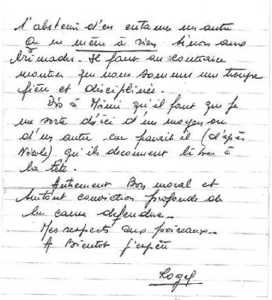 s'abstenir d'en entamer un autre
Ça ne mène à rien sinon aux
brimades. Il faut au contraire
montrer que nous sommes une troupe
fière et disciplinée.
Dis à Mémé qu'il faut que je
me sorte d'ici d'un moyen ou
d'un autre car paraît il (d'après
Nicole) qu'ils deviennent
la tête.
Autrement Bon moral et
surtout conviction profonde de
la cause défendue.
Mes respects aux
A Bientot j'espère
Roger